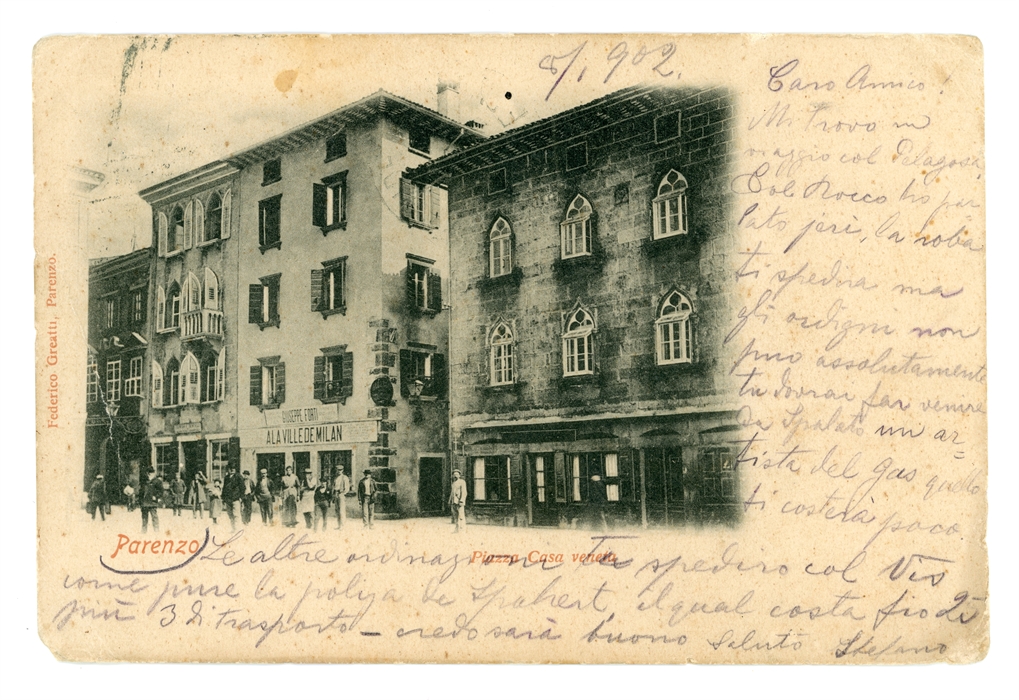 8/1 902.
Caro Amico.
Mi trovo in
viaggio col Pelagosa,
Col Rocco ho par
lato jeri, la roba
ti spedira ma
gli ordigni non
puo assolutamente
tu dovrai far venire
da Spalato un ar=
tista del gas quello
ti costerà poco
Federico Greatti, Parenzo.
GIUSEPPE FORTI
A LA VILLE DE MILAN
Parenzo
Piazza Casa veneta
Le altre ordinazioni Te spediro col
come pure la poliza de il qual costa fio 2
più 3 di trasporto - credo sarà buono Saluto Stefano